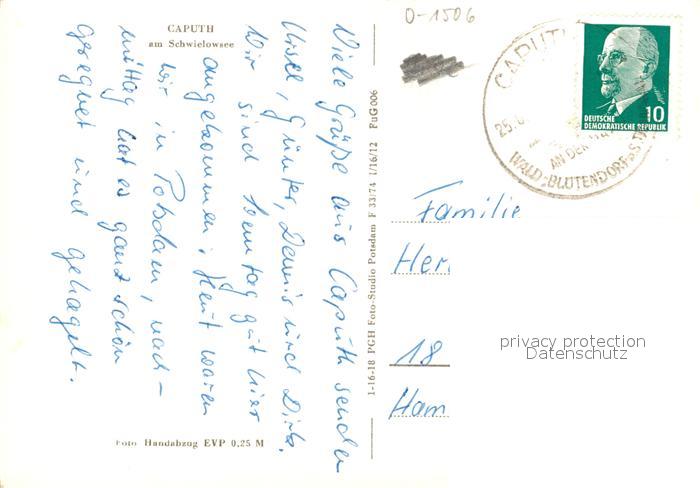 0-1506
CAPUTH
am Schwielowsee
Viele Grüße aus Caputh senden
Ursel, Günter, Dennis und Dirk.
Wir sind Sonntag gut hier
angekommen. Heut waren
wir in Potsdam, nach-
mittag hat es ganz schön
geregnet und gehagelt.
Foto Handabzug EVP 0,25 M
1-16-18 PGH Foto-Studio Potsdam F 33/74 1/16/12 FuG 006
CAPUTH
25.
AN DER
WALD-BLÜTENDORF
DEUTSCHE
DEMOKRATISCHE REPUBLIK
10
Familie
Her
18
Ham
privacy protection
Datenschutz